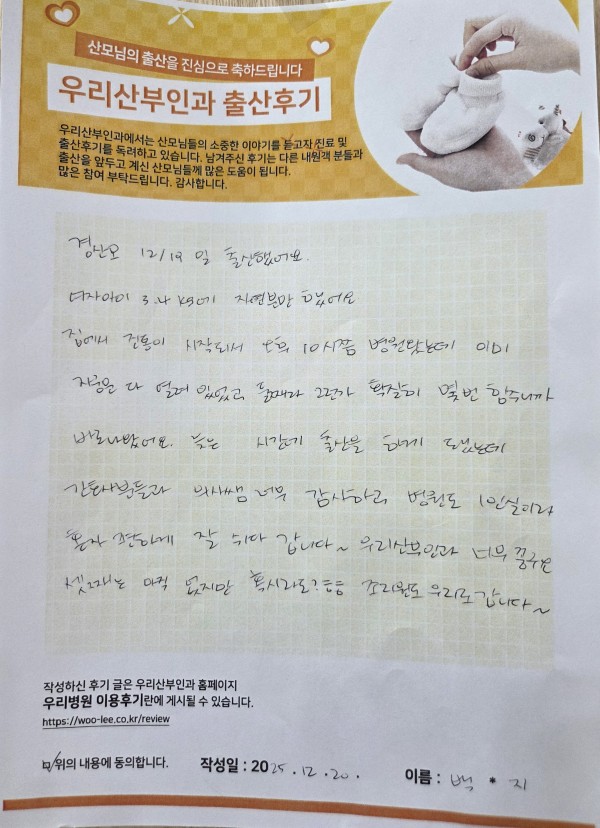 산모님의 출산을 진심으로 축하드립니다
우리산부인과 출산후기
우리산부인과에서는 산모님들의 소중한 이야기를 듣고자 진료 및
출산후기를 독려하고 있습니다. 남겨주신 후기는 다른 내원객 분들과
출산을 앞두고 계신 산모님들께 많은 도움이 됩니다.
많은 참여 부탁드립니다. 감사합니다.
경산모 12/19 일 출산했어요.
여자아이 3.4 kg에 자연분만 했어요
집에서 진통이 시작되서 오후 10시쯤 병원왔는데 이미
자궁은 다 열려 있었고 둘째라 그런가 확실히 몇번 힘주니까
바로나왔어요. 늦은 시간에 출산을 하게 됐는데
간호사분들과 의사쌤 너무 감사하고 병원도 1인실이라
혼자 편하게 잘 쉬다 갑니다~ 우리산부인과 너무 좋구요
셋째는 아직 없지만 혹시라도? ㅎㅎ 조리원도 우리로 갑니다~
작성하신 후기 글은 우리산부인과 홈페이지
우리병원 이용후기란에 게시될 수 있습니다.
https://woo-lee.co.kr/review
위의 내용에 동의합니다. 작성일 : 2025.12.20. 이름 : 백 * 지